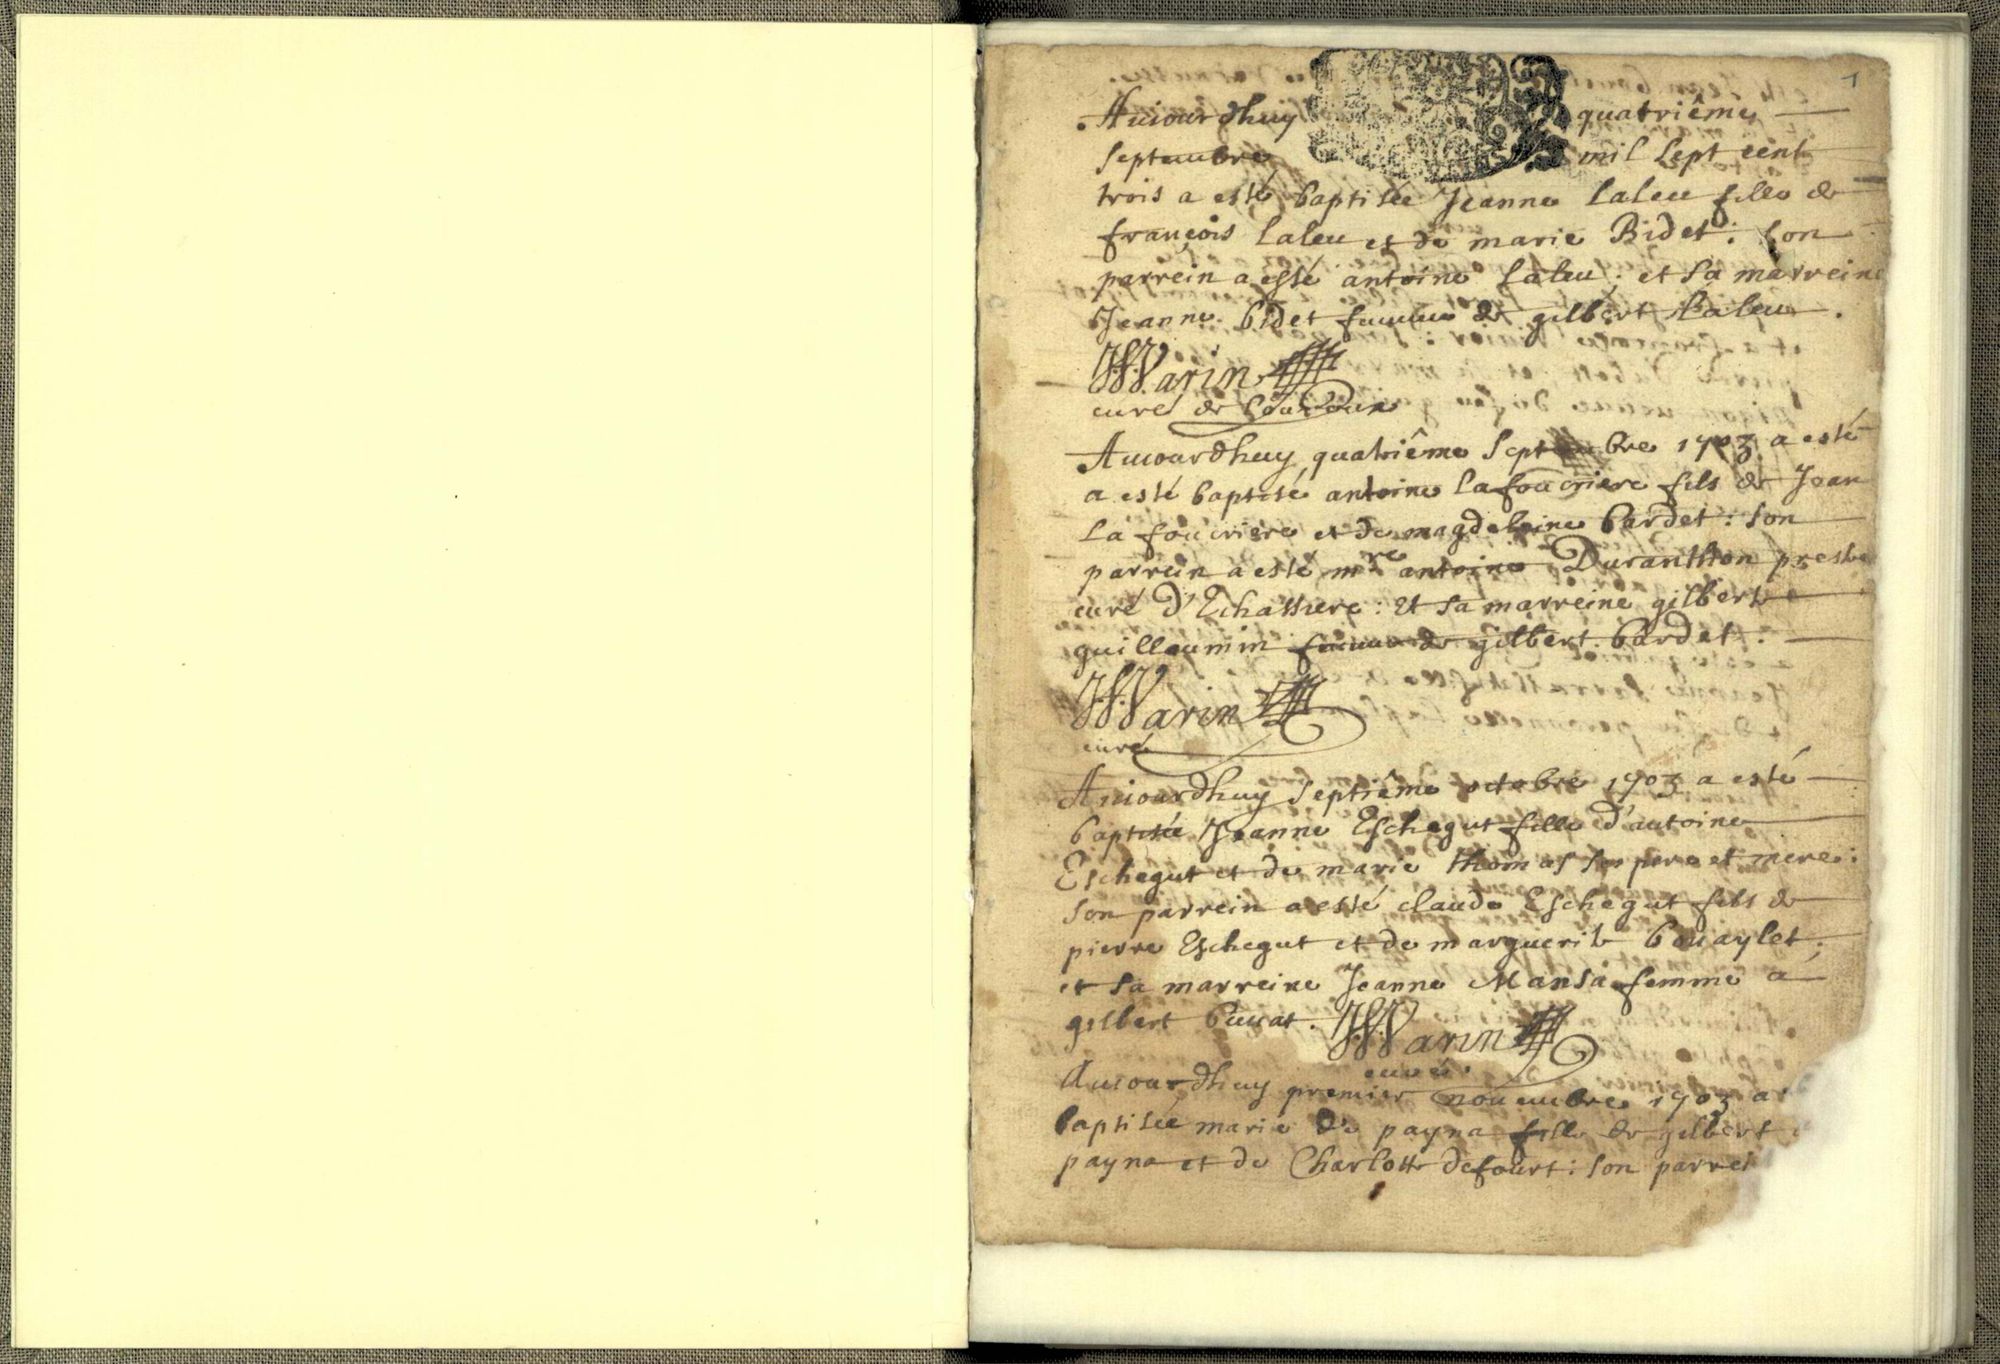 1
Auiourdhuy quatriême
septembre mil sept cent
trois a esté baptisée Jeanne laleu fille de
françois laleu et de marie Bidet : son
parrein a esté antoine laleu ; et sa marreine
Jeanne bidet femme de gilbert laleu .
Warin
curé de
Auiourdhuy quatriême septembre 1703 a esté
a esté baptisé antoine lafoucriere fils de Jean
la foucriere et de magdeleine bardet : son
parrein a esté mre antoine Duranthon presbt
curé d'Echassiere : Et sa marreine gilberte
guillaumin femme de gilbert bardet .
Warin
curé
Auiourdhuy septiême octobre 1703 a esté
baptisée Jeanne Eschegut fille d'antoine
Eschegut et de marie thomas ses pere et mere :
son parrein a esté claude Eschegut fils de
pierre Eschegut et de marguerite bouaylet .
et sa marreine Jeanne Mansa femme á
gilbert . Warin
curé .
Auiourdhuy premier nouembre 1703 a
baptisée marie de payna fille de gilbert
payna et de Charlotte defourt : son parrei